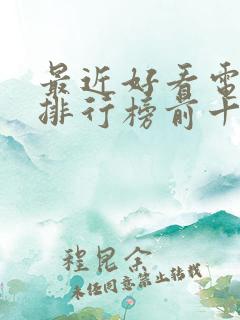 最近好看電
排行榜前十
程昆余
未任同意禁止转载